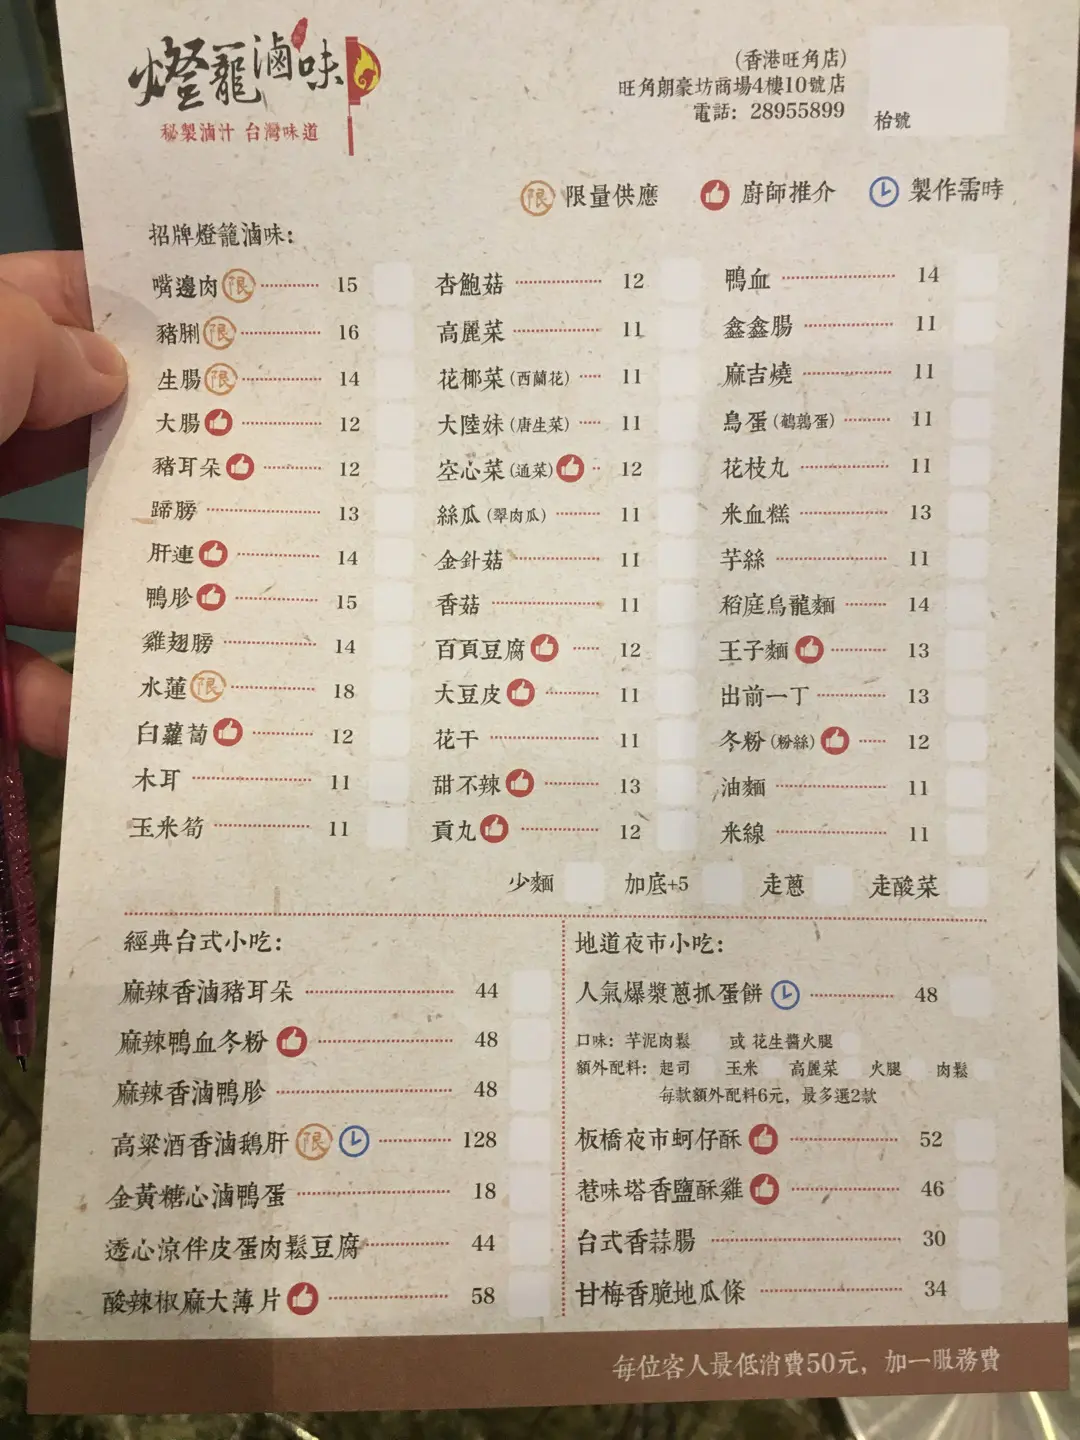 燈籠滷味
秘製滷汁 台灣味道
(香港旺角店)
旺角朗豪坊商場4樓10號店
電話: 28955899
枱號
限 限量供應 廚師推介 製作需時
招牌燈籠滷味:
嘴邊肉 限 15
豬脷 限 16
生腸 限 14
大腸 12
豬耳朵 12
蹄膀 13
肝連 14
鴨胗 15
雞翅膀 14
水蓮 限 18
白蘿蔔 12
木耳 11
玉米筍 11
杏鮑菇 12
高麗菜 11
花椰菜 (西蘭花) 11
大陸妹 (唐生菜) 11
空心菜 (通菜) 12
絲瓜 (翠肉瓜) 11
金針菇 11
香菇 11
百頁豆腐 12
大豆皮 11
花干 11
甜不辣 13
貢丸 12
鴨血 14
鑫鑫腸 11
麻吉燒 11
鳥蛋 (鵪鶉蛋) 11
花枝丸 11
米血糕 13
芋絲 11
稻庭烏龍麵 14
王子麵 13
出前一丁 13
冬粉 (粉絲) 12
油麵 11
米線 11
少麵 加底+5 走蔥 走酸菜
經典台式小吃:
麻辣香滷豬耳朵 44
麻辣鴨血冬粉 48
麻辣香滷鴨胗 48
高粱酒香滷鵝肝 限 128
金黃糖心滷鴨蛋 18
透心涼伴皮蛋肉鬆豆腐 44
酸辣椒麻大薄片 58
地道夜市小吃:
人氣爆漿蔥抓蛋餅 48
口味: 芋泥肉鬆 或 花生醬火腿
額外配料: 起司 玉米 高麗菜 火腿 肉鬆
每款額外配料6元, 最多選2款
板橋夜市蚵仔酥 52
惹味塔香鹽酥雞 46
台式香蒜腸 30
甘梅香脆地瓜條 34
每位客人最低消費50元, 加一服務費